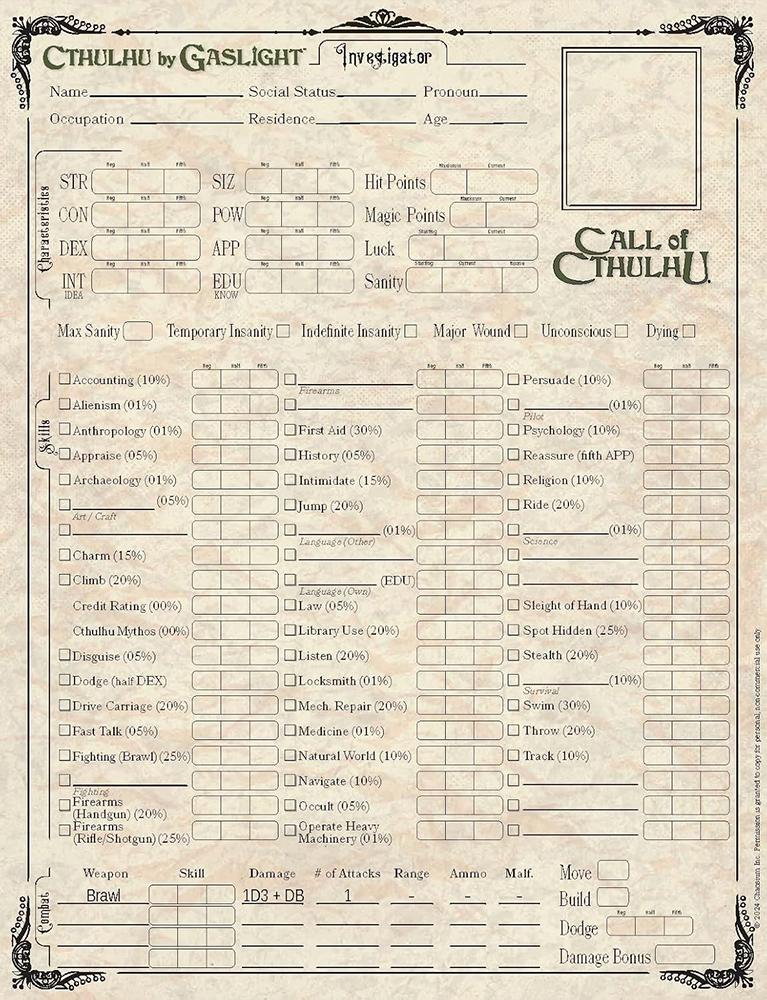 CTHULHU by GASLIGHT
Investigator
Name Social Status Pronoun
Occupation Residence Age
CALL of CTHULHU
Characteristics
Reg Half Fifth Reg Half Fifth Maximum Current
STR SIZ Hit Points
Reg Half Fifth Reg Half Fifth Maximum Current
CON POW Magic Points
Reg Half Fifth Reg Half Fifth Starting Current
DEX APP Luck
Reg Half Fifth Reg Half Fifth Starting Current Insane
INT EDU Sanity
IDEA KNOW
Max Sanity Temporary Insanity Indefinite Insanity Major Wound Unconscious Dying
Skills
Reg Half Fifth Reg Half Fifth Reg Half Fifth
Accounting (10%)
Alienism (01%)
Anthropology (01%)
Appraise (05%)
Archaeology (01%)
(05%)
Art / Craft
Charm (15%)
Climb (20%)
Credit Rating (00%)
Cthulhu Mythos (00%)
Disguise (05%)
Dodge (half DEX)
Drive Carriage (20%)
Fast Talk (05%)
Fighting (Brawl) (25%)
Fighting
Firearms
(Handgun) (20%)
Firearms
(Rifle/Shotgun) (25%)
Firearms
First Aid (30%)
History (05%)
Intimidate (15%)
Jump (20%)
(01%)
Language (Other)
(EDU)
Language (Own)
Law (05%)
Library Use (20%)
Listen (20%)
Locksmith (01%)
Mech. Repair (20%)
Medicine (01%)
Natural World (10%)
Navigate (10%)
Occult (05%)
Operate Heavy
Machinery (01%)
Persuade (10%)
(01%)
Pilot
Psychology (10%)
Reassure (fifth APP)
Religion (10%)
Ride (20%)
(01%)
Science
Sleight of Hand (10%)
Spot Hidden (25%)
Stealth (20%)
(10%)
Survival
Swim (30%)
Throw (20%)
Track (10%)
Combat
Weapon Skill Damage # of Attacks Range Ammo Malf.
Brawl 1D3 + DB 1 - - -
Move
Build
Reg Half Fifth
Dodge
Damage Bonus
© 2024 Chaosium Inc. Permission is granted to copy for personal, non-commercial use only